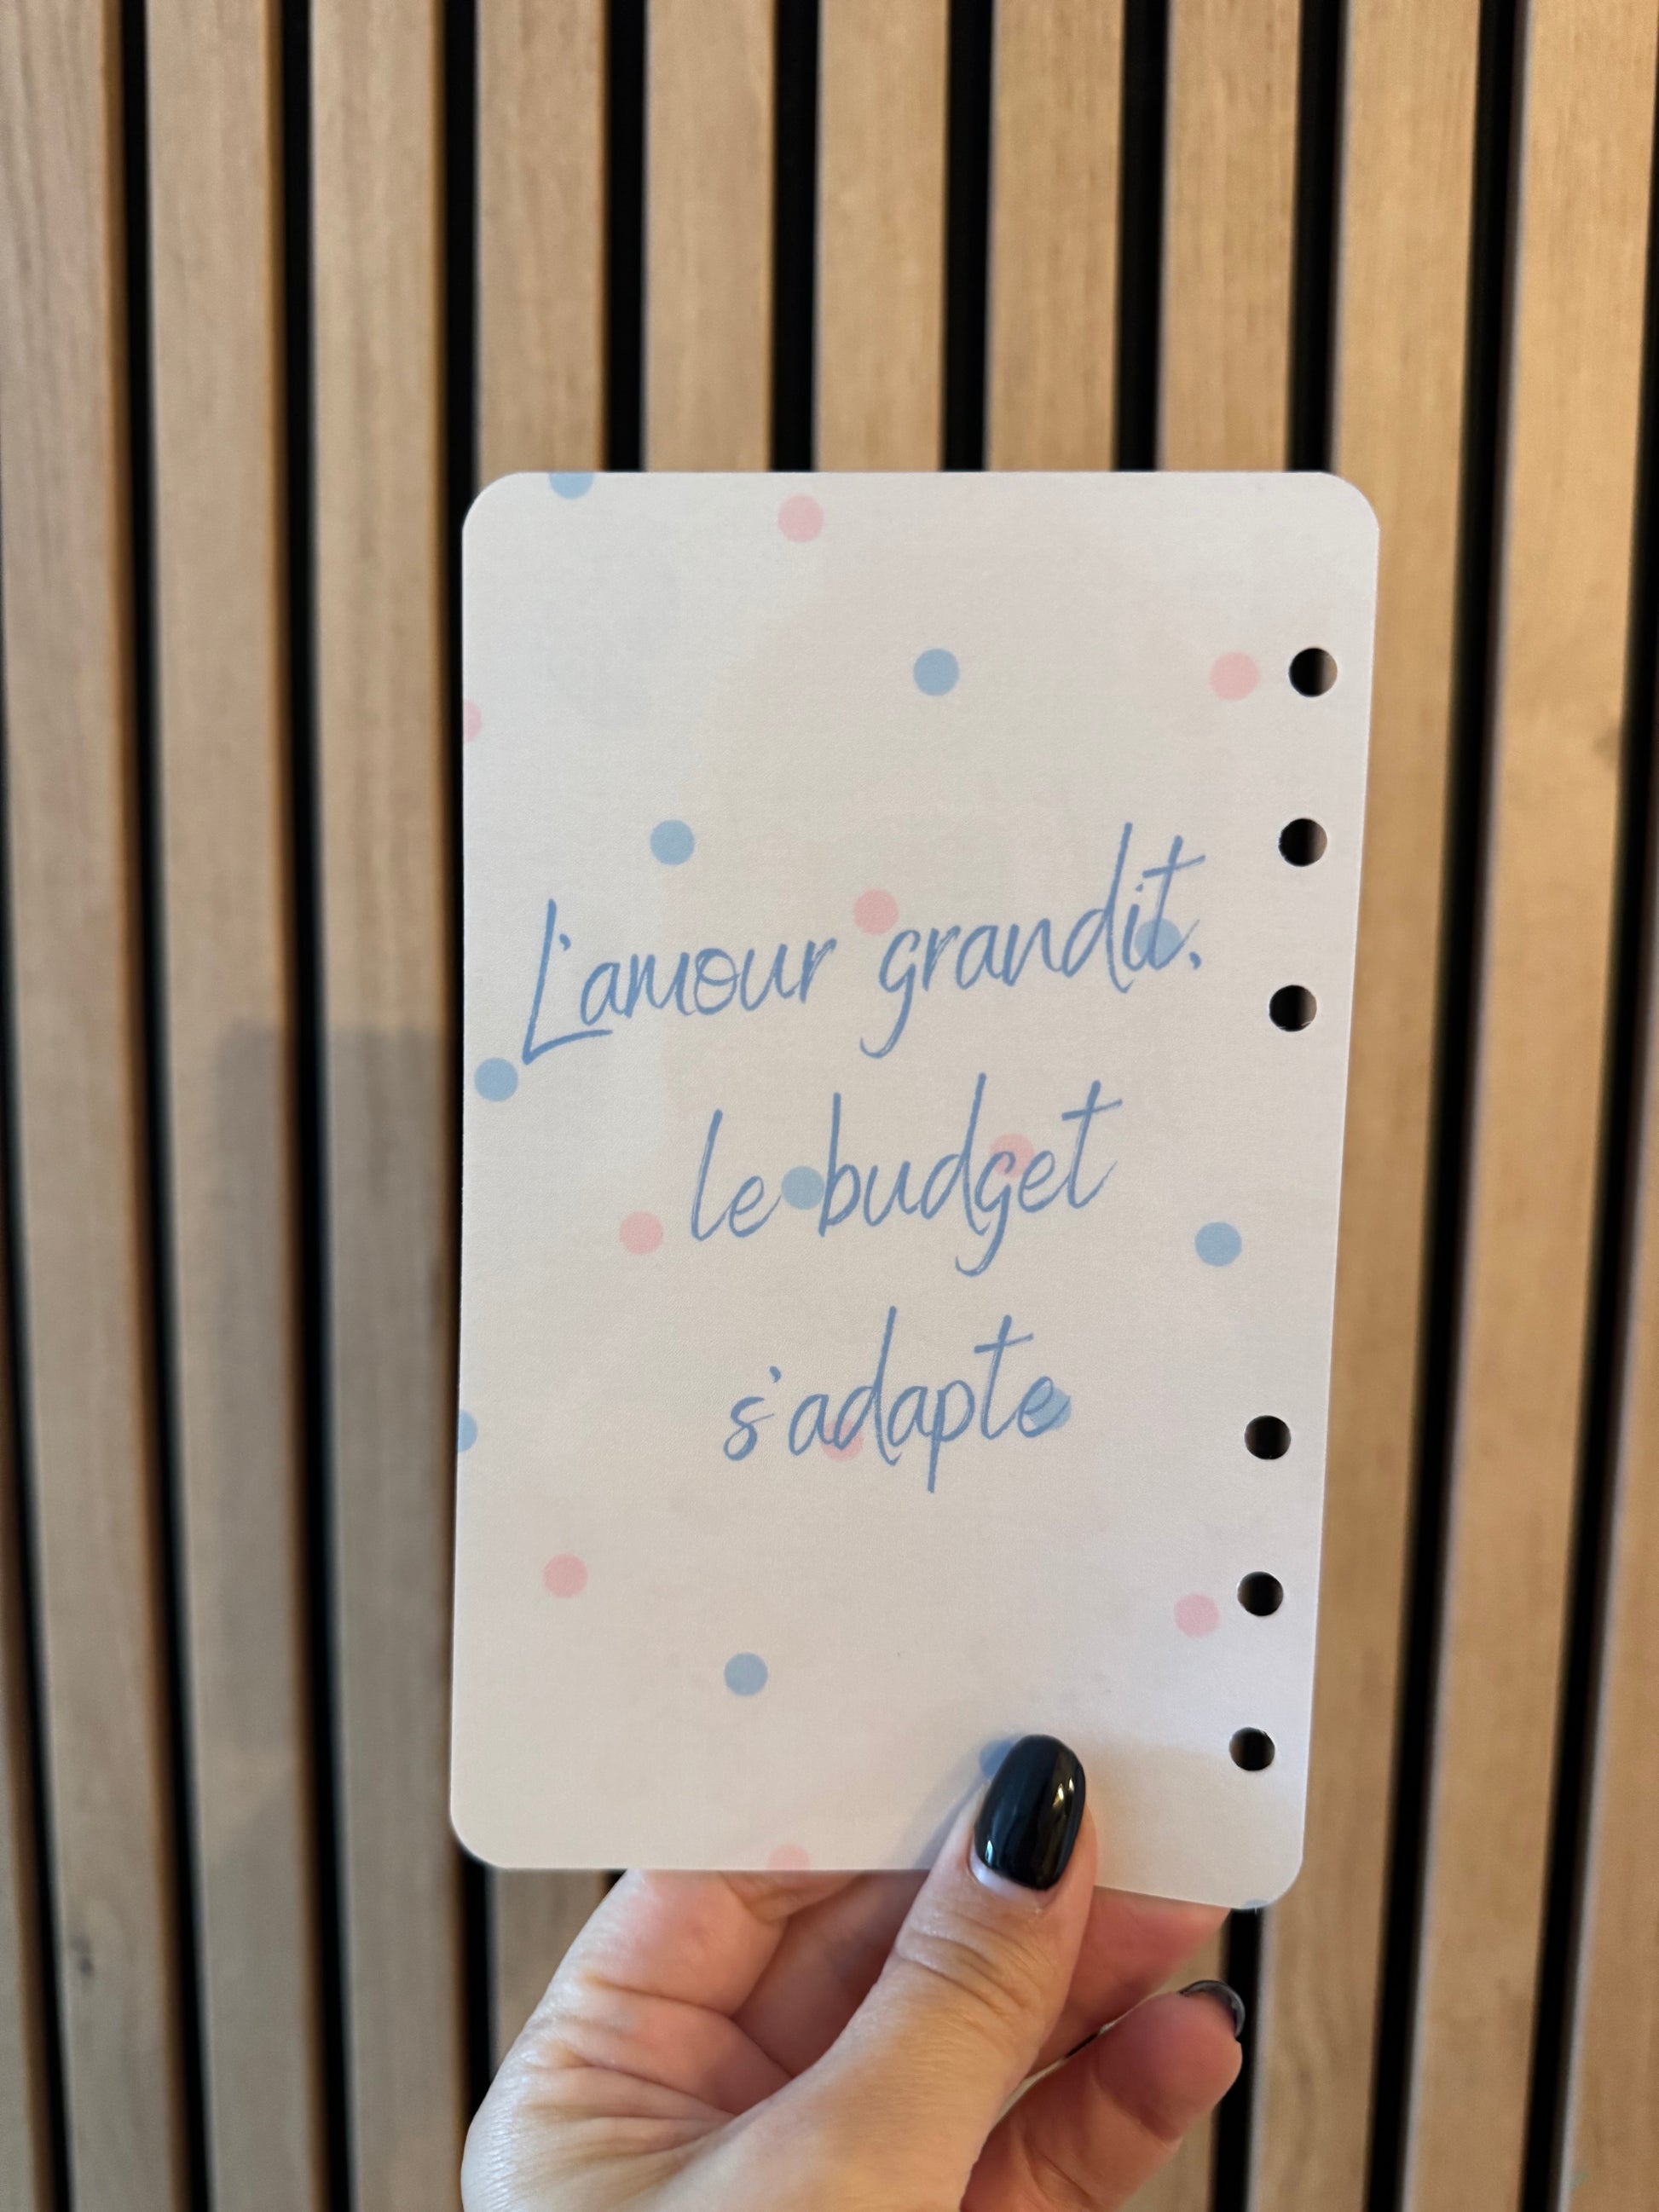 L'amour grandit,
le budget
s'adapte